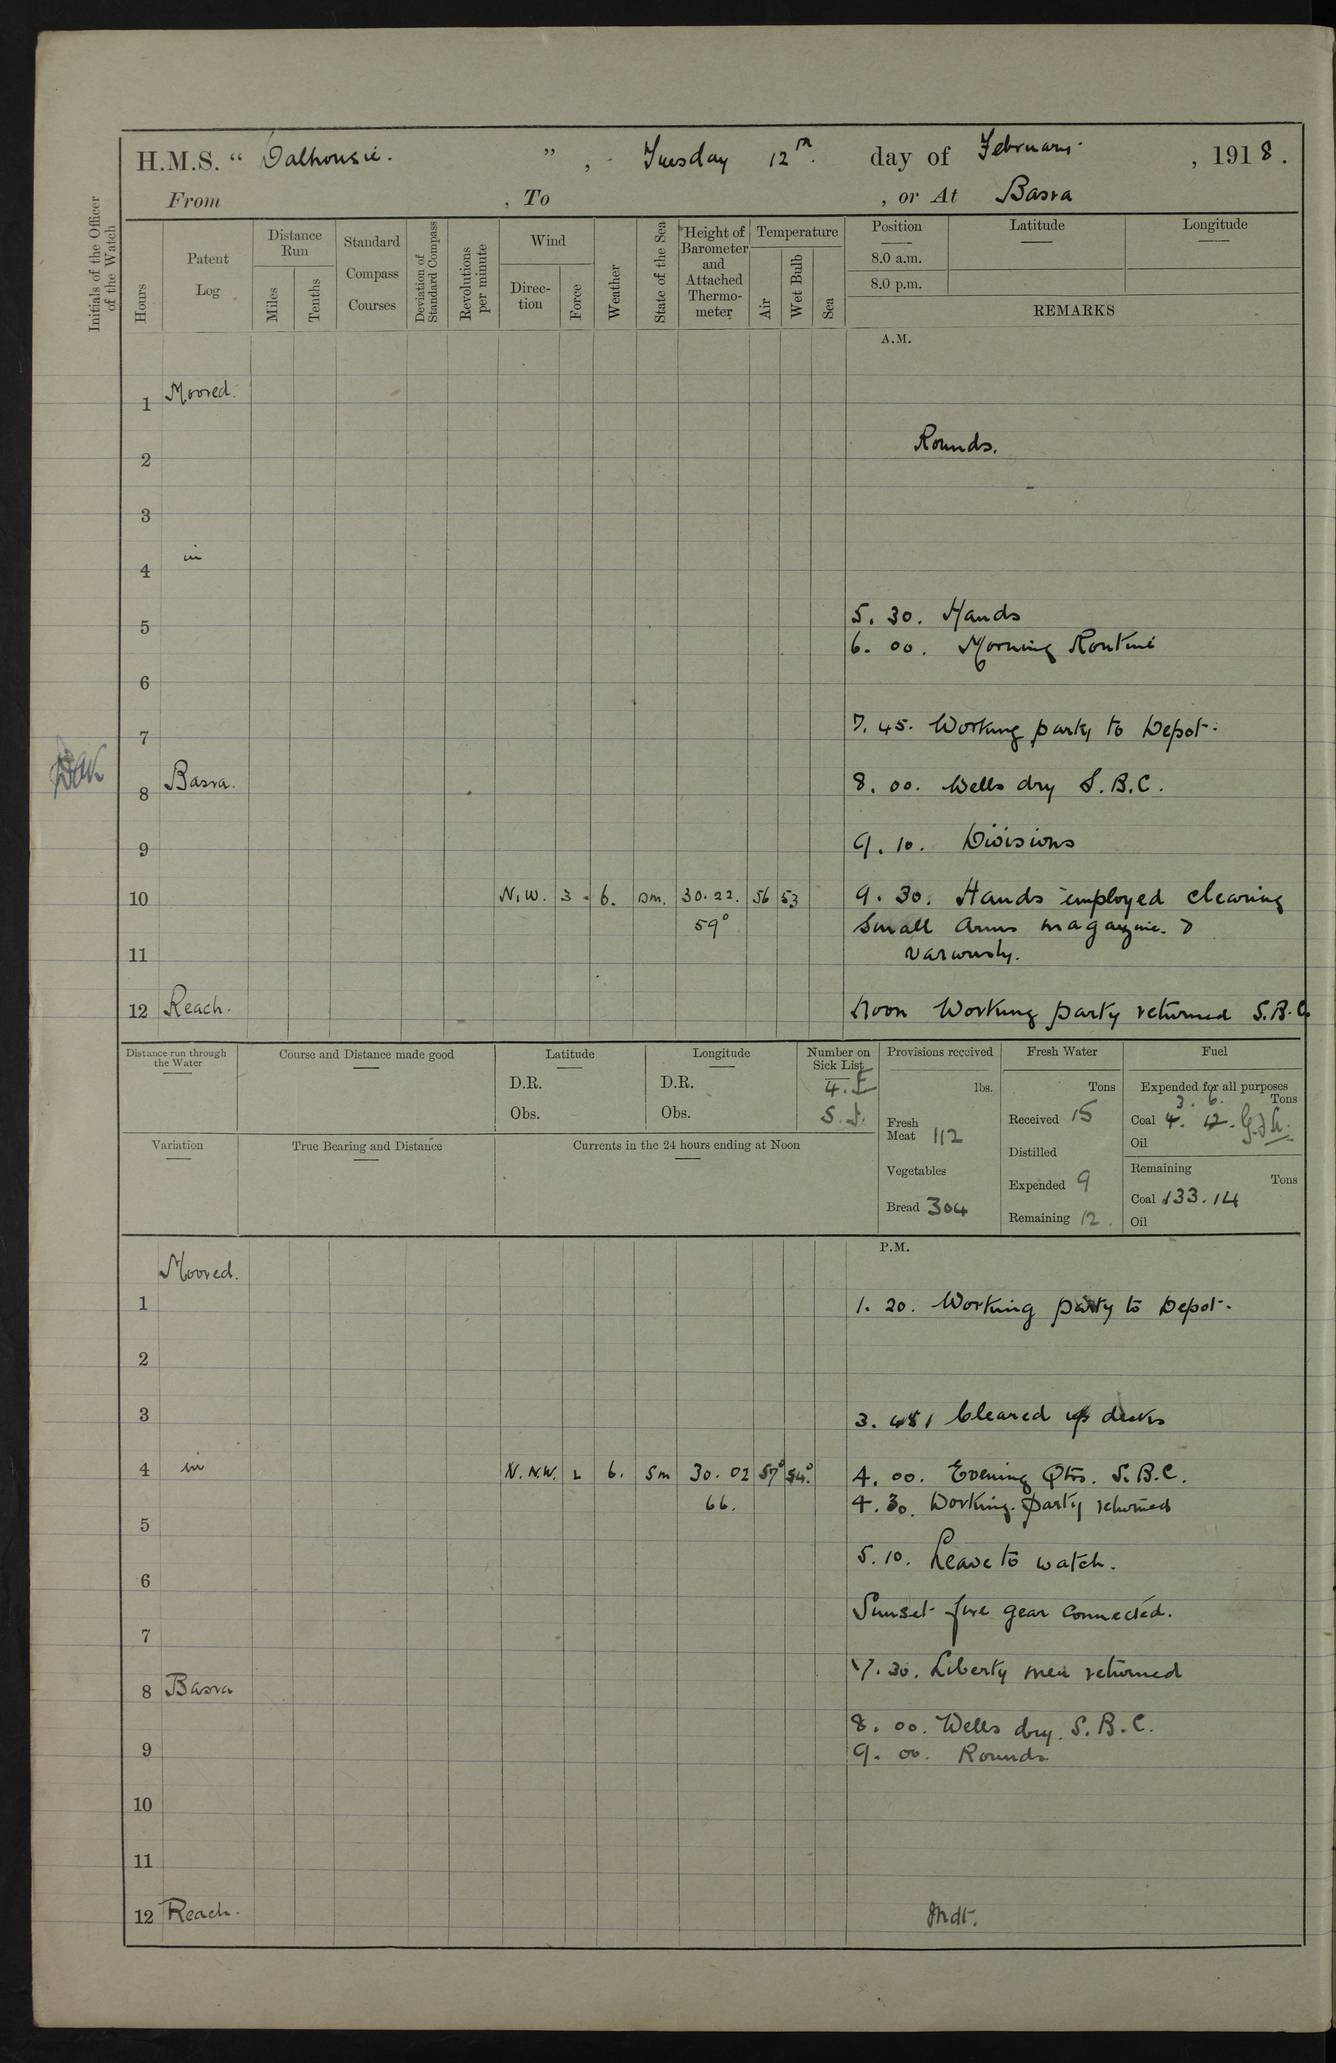 H.M.S. “ Dalhousie. ” , Tuesday 12th. day of February. , 1918.
From , To , or At Basra
Initials of the Officer of the Watch
Hours
Patent Log
Distance Run
Miles
Tenths
Standard Compass Courses
Deviation of Standard Compass
Revolutions per minute
Wind
Direction
Force
Weather
State of the Sea
Height of Barometer and Attached Thermometer
Temperature
Air
Wet Bulb
Sea
Position
Latitude
Longitude
8.0 a.m.
8.0 p.m.
REMARKS
A.M.
1 Moored.
2 Rounds.
3
4 in
5 5. 30. Hands
6. 00. Morning Routine
6
7 7. 45. Working party to Depot.
8 Basra. 8. 00. Wells dry S.B.C.
9 9. 10. Divisions
10 N.W. 3 - 6. sm. 30.22. 56 53 9. 30. Hands employed clearing
59° small arms magazine &
11 variously.
12 Reach. Noon Working party returned S.B.C.
Distance run through the Water
Course and Distance made good
Latitude
D.R.
Obs.
Longitude
D.R.
Obs.
Number on Sick List
4. E
Provisions received
lbs.
Fresh Meat 112
Vegetables
Bread 304
Fresh Water
Tons
Received 15
Distilled
Expended 9
Remaining 12.
Fuel
Expended for all purposes
Tons
3. 6.
Coal 4. 12.
Oil
Remaining
Tons
Coal 133.14
Oil
Variation
True Bearing and Distance
Currents in the 24 hours ending at Noon
P.M.
Moored.
1 1. 20. Working party to Depot.
2
3 3. 45. Cleared up decks
4 in N.N.W. 2 6. sm 30.02 57° 54.° 4. 00. Evening Qtrs. S.B.C.
66. 4.30. Working party returned
5
5.10. Leave to watch.
6
Sunset fire gear connected.
7
7.30. Liberty men returned
8 Basra
8. 00. Wells dry. S.B.C.
9 9. 00. Rounds
10
11
12 Reach. Mdt.